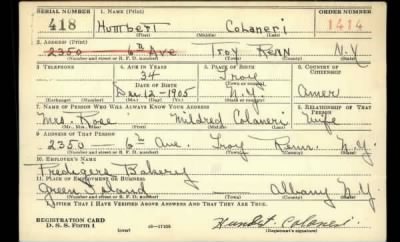 SERIAL NUMBER 1. NAME (Print) ORDER NUMBER
418 Humbert Colaneri 1414
(First) (Middle) (Last)
2. ADDRESS (Print)
2350 6th Ave Troy Renn N.Y
(Number and street or R. F. D. number) (Town) (County) (State)
3. TELEPHONE 4. AGE IN YEARS 5. PLACE OF BIRTH 6. COUNTRY OF CITIZENSHIP
34 Troy
DATE OF BIRTH (Town or county)
Dec 12-1905 N.Y. Amer
(Exchange) (Number) (Mo.) (Day) (Yr.) (State or country)
7. NAME OF PERSON WHO WILL ALWAYS KNOW YOUR ADDRESS 8. RELATIONSHIP OF THAT PERSON
Mrs. Rose Mildred Colaneri Wife
(Mr., Mrs., Miss) (First) (Middle) (Last)
9. ADDRESS OF THAT PERSON
2350 — 6th Ave. Troy Renn. N.Y.
(Number and street or R. F. D. number) (Town) (County) (State)
10. EMPLOYER'S NAME
Fredigers Bakery
11. PLACE OF EMPLOYMENT OR BUSINESS
Green Island Albany N.Y.
(Number and street or R. F. D. number) (Town) (County) (State)
I AFFIRM THAT I HAVE VERIFIED ABOVE ANSWERS AND THAT THEY ARE TRUE.
REGISTRATION CARD
D. S. S. Form 1 (over) Humbert Colaneri
(Registrant's signature)